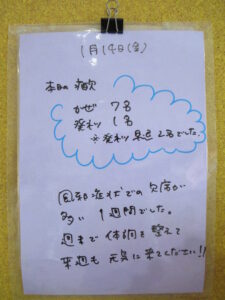 1月14日(金)
本日の病欠
かぜ 7名
発熱 1名
※発熱 早退 2名でした。
風邪症状での欠席が
多い 1週間でした。
週末で体調を整えて
来週も 元気に来てください!!